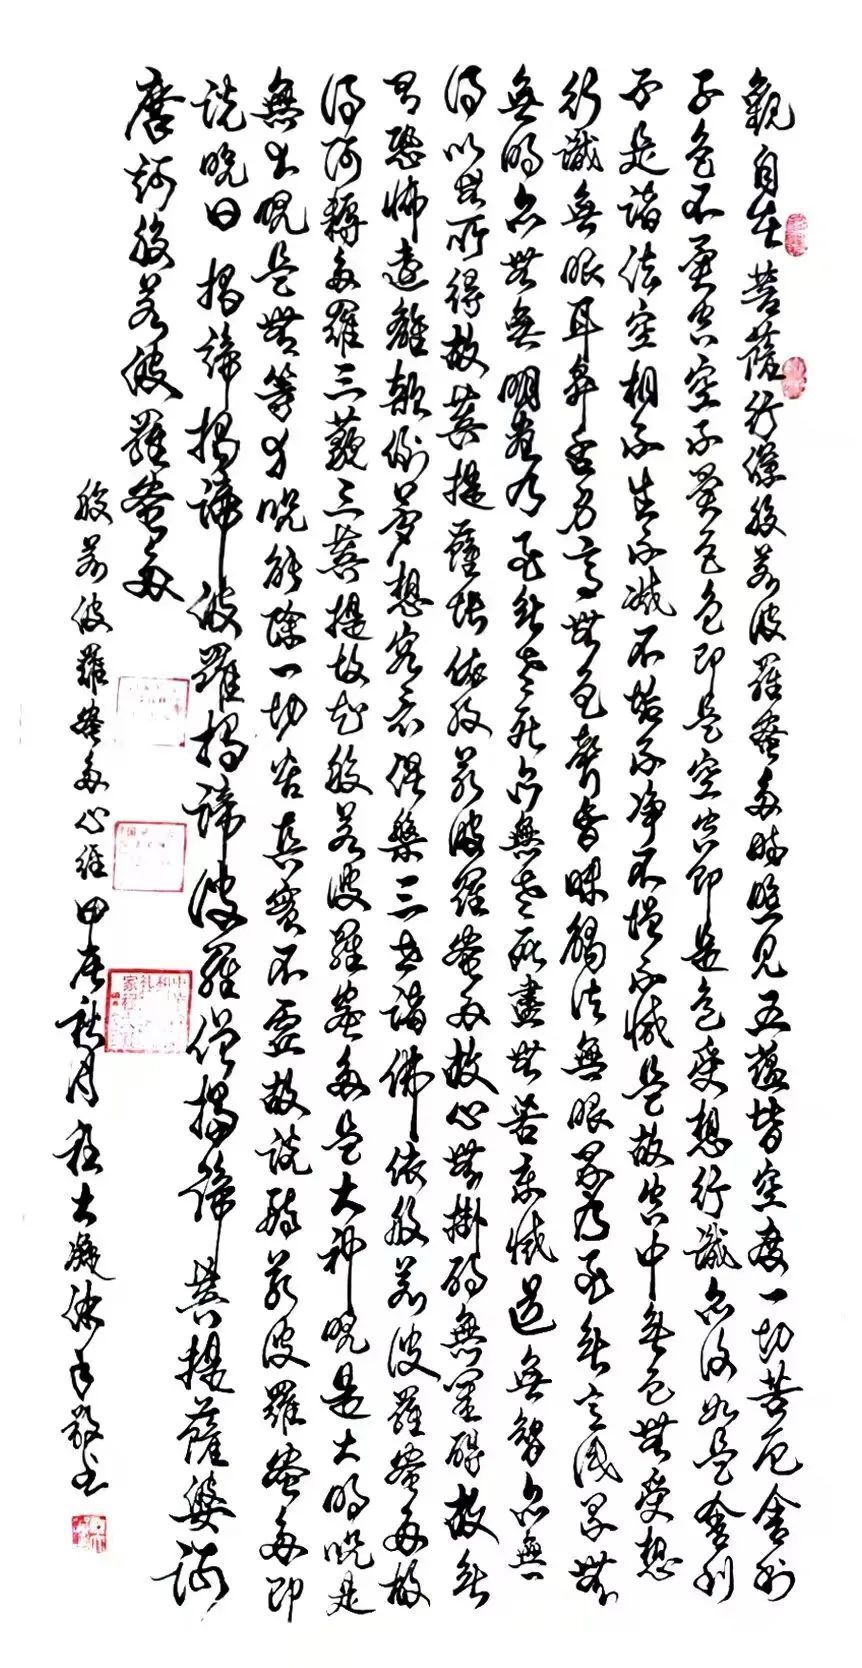 觀自在菩薩行深般若波羅蜜多時照見五蘊皆空度一切苦厄舍利
子色不異空空不異色色即是空空即是色受想行識亦復如是舍利
子是諸法空相不生不滅不垢不淨不增不減是故空中無色無受想
行識無眼耳鼻舌身意無色聲香味觸法無眼界乃至無意識界無
無明亦無無明盡乃至無老死亦無老死盡無苦集滅道無智亦無
得以無所得故菩提薩埵依般若波羅蜜多故心無掛礙無罣礙故無
有恐怖遠離顛倒夢想究竟涅槃三世諸佛依般若波羅蜜多故
得阿耨多羅三藐三菩提故知般若波羅蜜多是大神咒是大明咒是
無上咒是無等等咒能除一切苦真實不虛故說般若波羅蜜多即
說咒曰 揭諦揭諦波羅揭諦波羅僧揭諦 菩提薩婆訶
摩訶般若波羅蜜多
般若波羅蜜多心經 甲辰秋月 沐手敬書